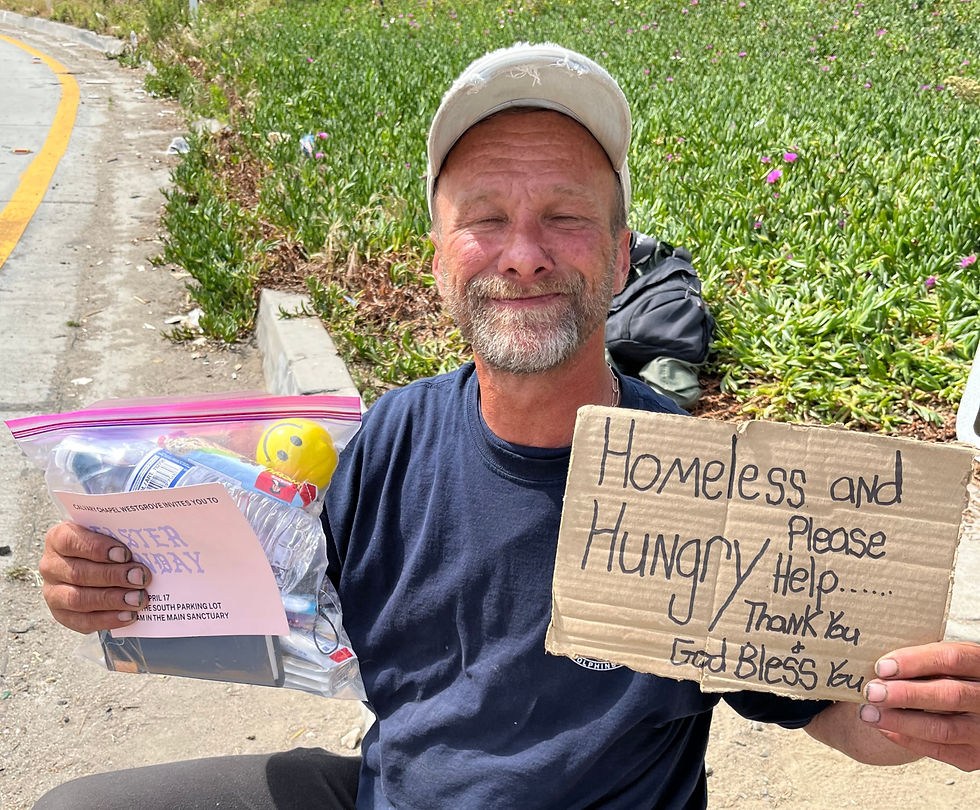 CALVARY CHAPEL WESTGROVE INVITES YOU TO
EASTER
APRIL 17
THE SOUTH PARKING LOT
AM IN THE MAIN SANCTUARY
Homeless and
Hungry
Please
Help......
Thank You
&
God Bless You
DOLPHINS